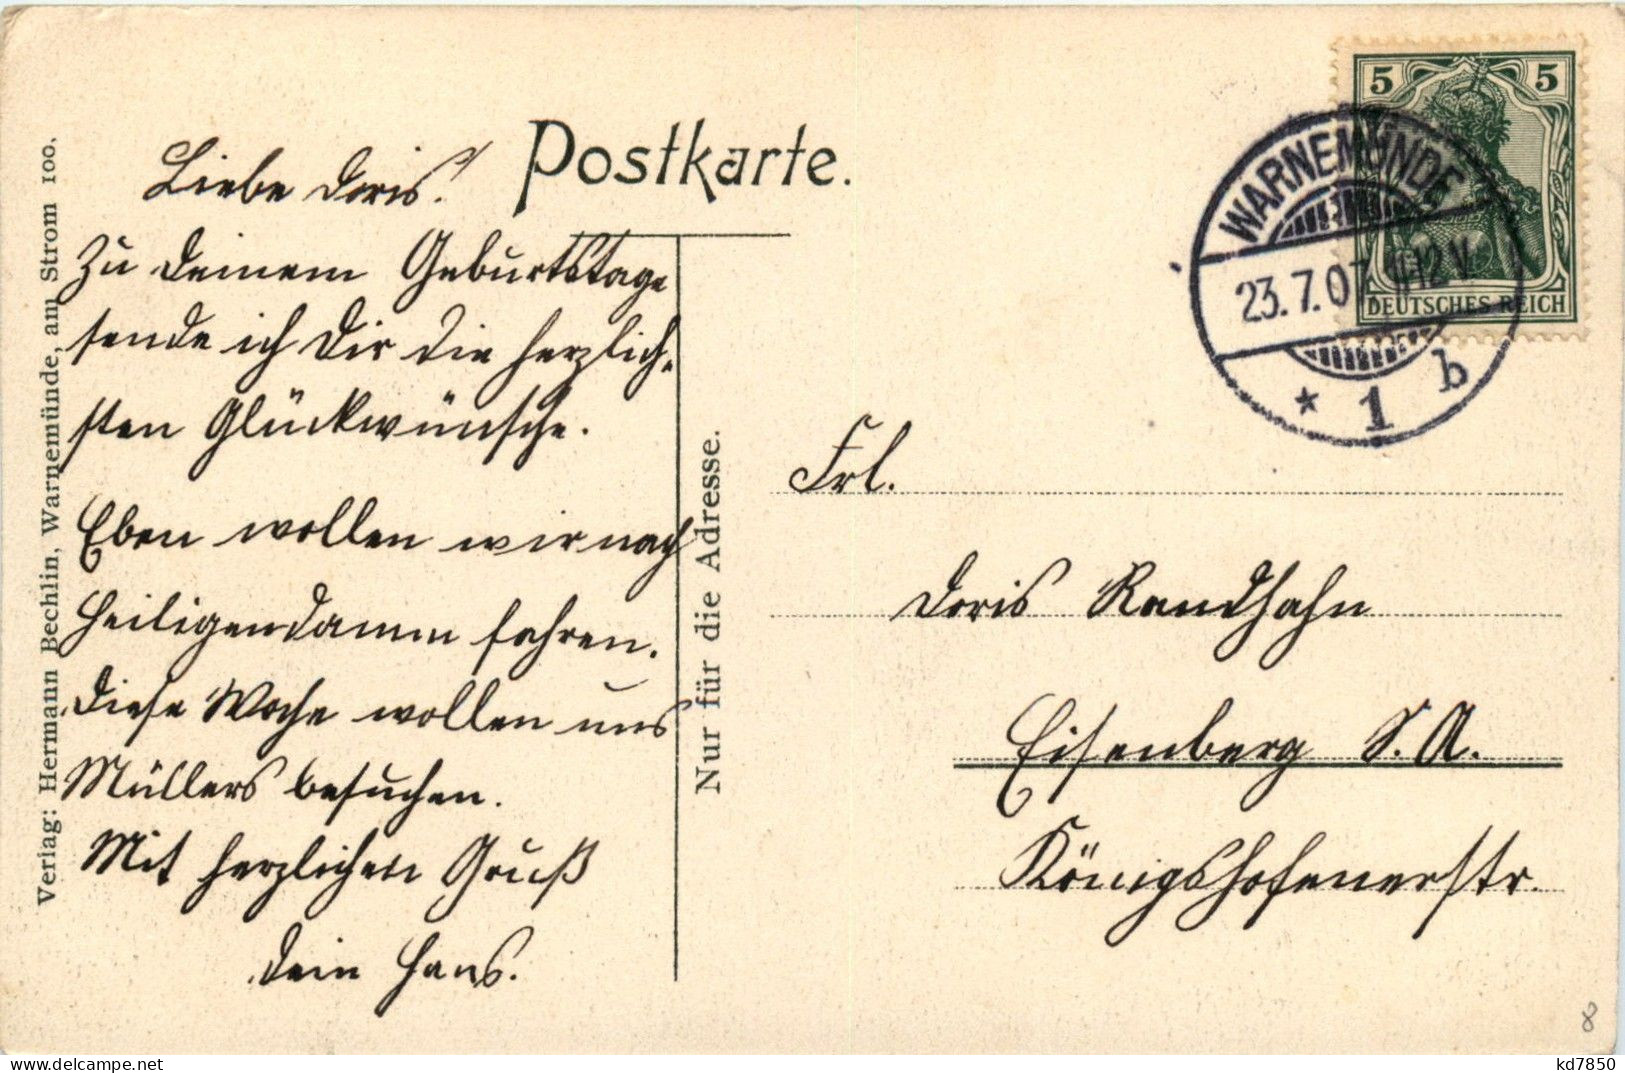 Postkarte.
Liebe Doris!
Zu Deinem Geburtstage
sende ich Dir die herzlich-
sten Glückwünsche.
Eben wollen wir nach
Heiligendamm fahren.
Diese Woche wollen uns
Müllers besuchen.
Mit herzlichen Gruß
Dein Hans.
Verlag: Hermann Bechlin, Warnemünde, am Strom 100.
Nur für die Adresse.
5 5
DEUTSCHES REICH
WARNEMÜNDE
23.7.07 11-12 V.
* 1 b
Frl.
Doris Randhahn
Eisenberg S.A.
Königshofenerstr.
8
kd7850